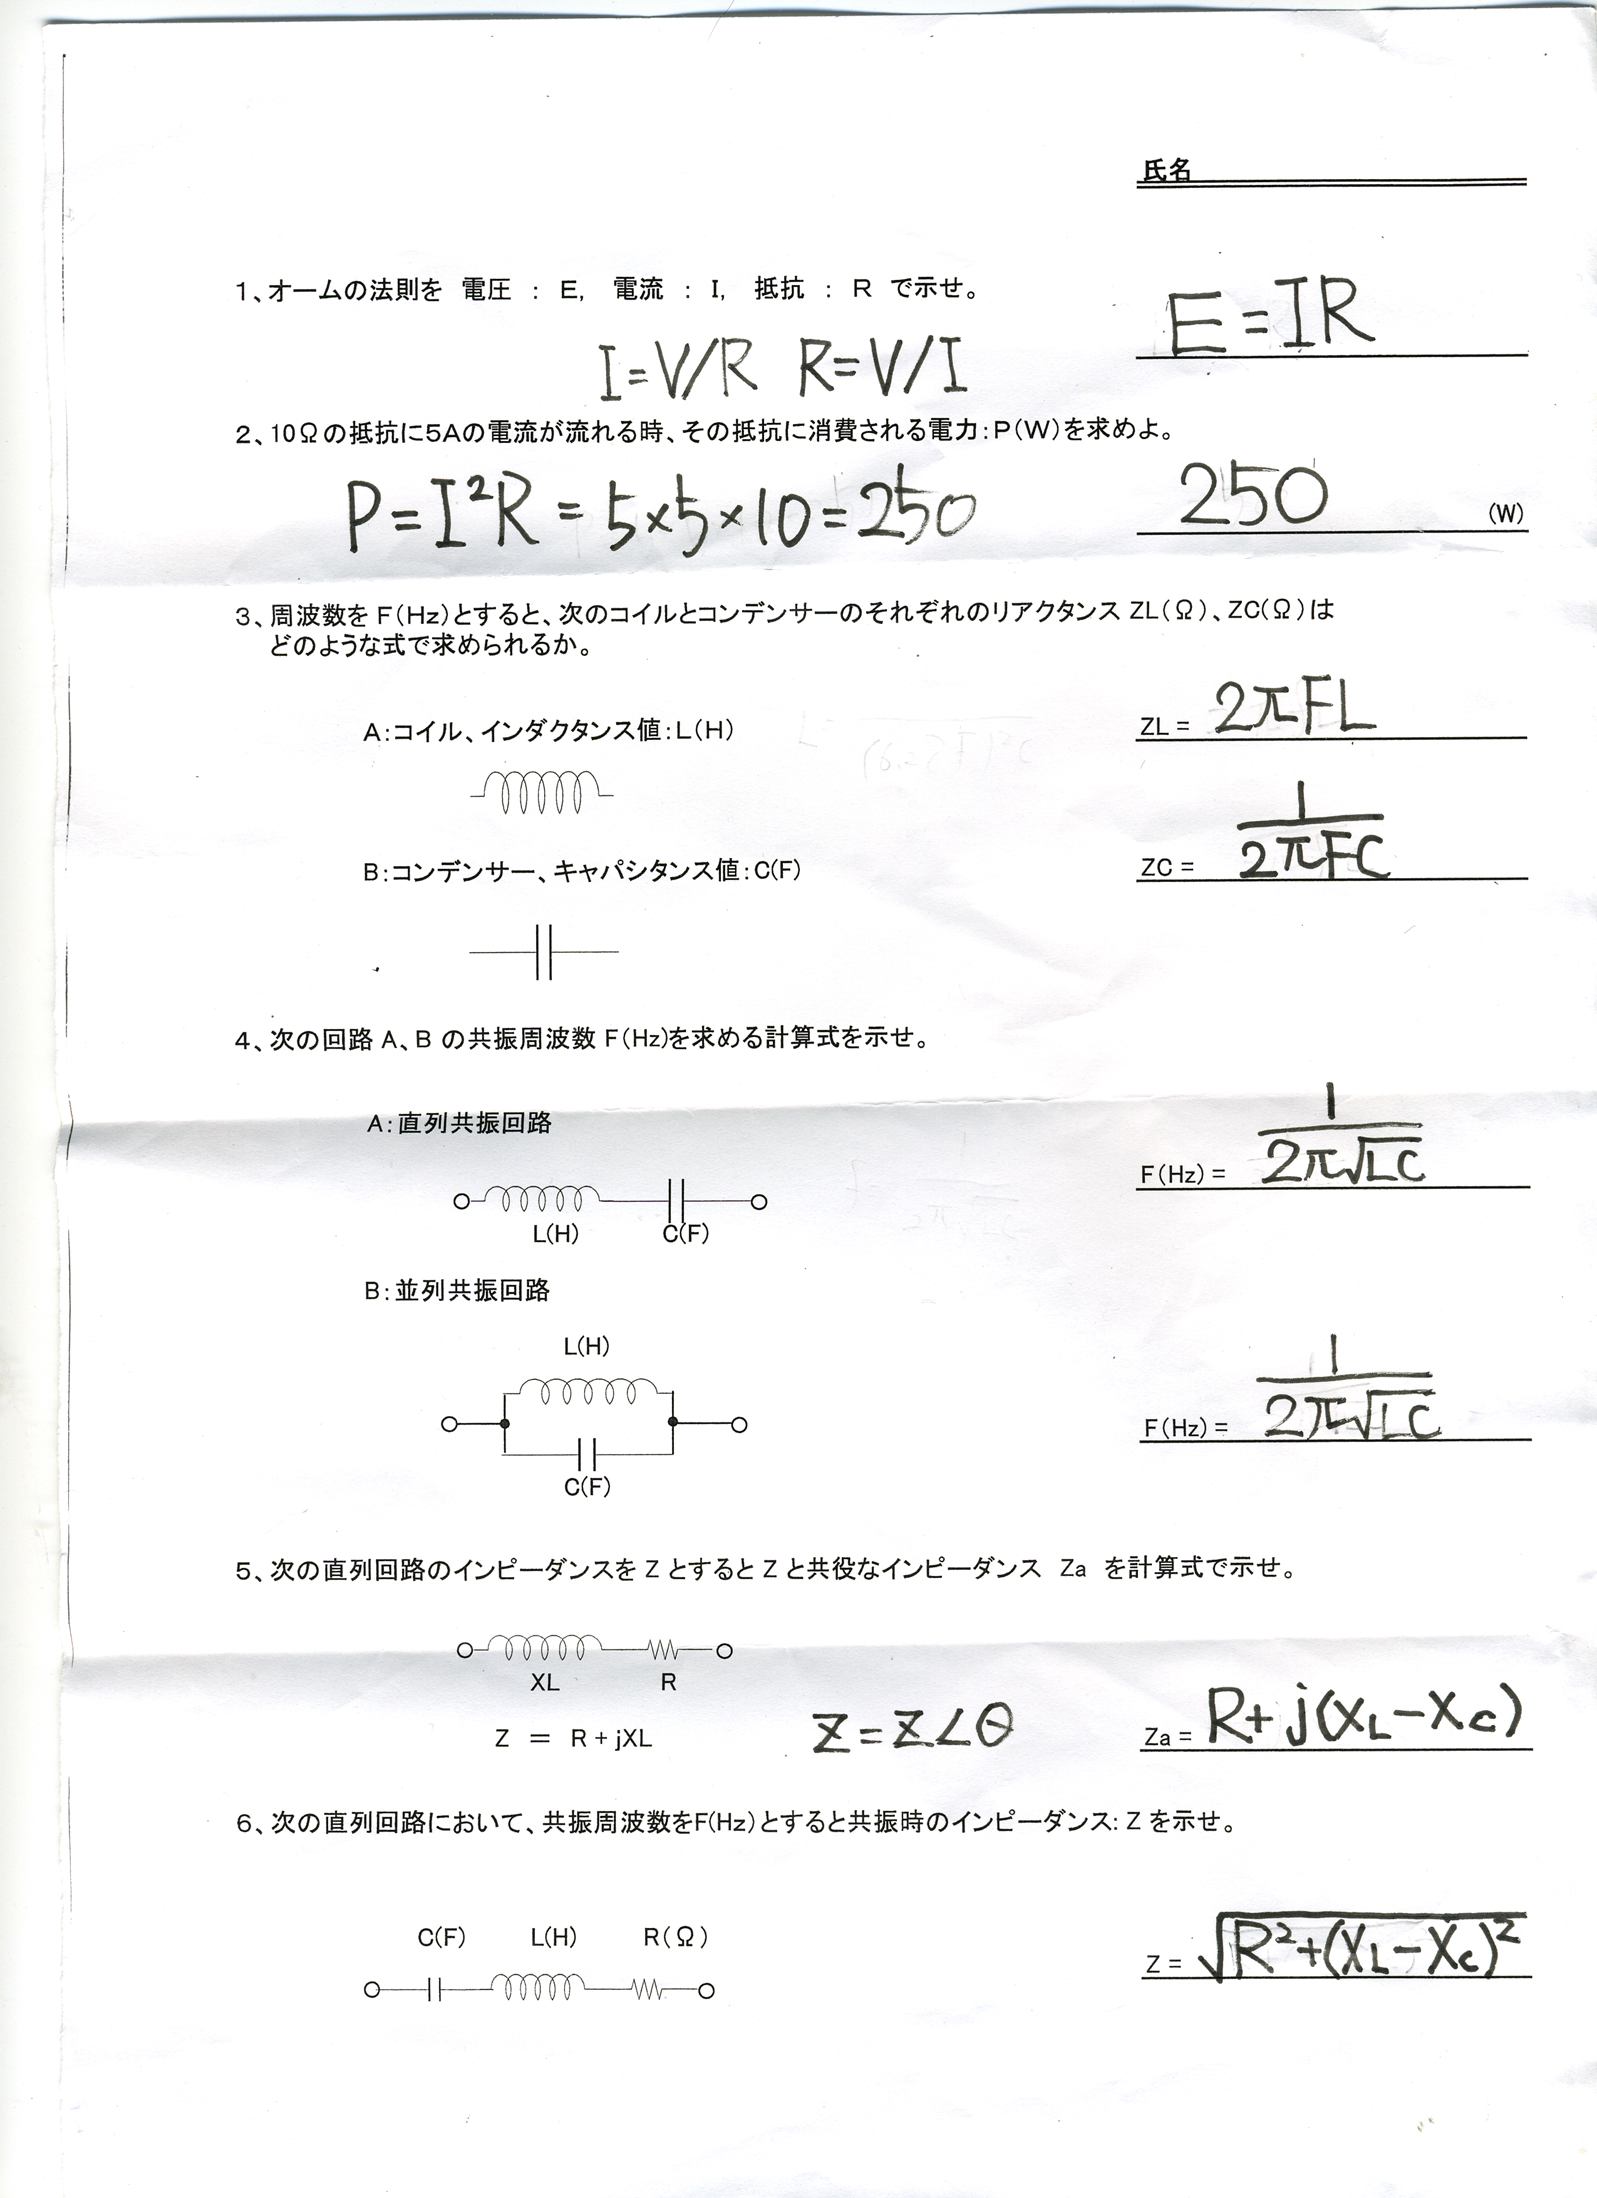 氏名
1、オームの法則を 電圧 : E, 電流 : I, 抵抗 : R で示せ。
E=IR
I=V/R R=V/I
2、10Ωの抵抗に5Aの電流が流れる時、その抵抗に消費される電力:P(W)を求めよ。
P=I²R=5×5×10=250
250 (W)
3、周波数を F(Hz)とすると、次のコイルとコンデンサーのそれぞれのリアクタンス ZL(Ω)、ZC(Ω)は
どのような式で求められるか。
A:コイル、インダクタンス値:L(H)
ZL = 2πFL
B:コンデンサー、キャパシタンス値:C(F)
ZC = 1/2πFC
4、次の回路 A、B の共振周波数 F(Hz)を求める計算式を示せ。
A:直列共振回路
F(Hz) = 1/2π√LC
L(H) C(F)
B:並列共振回路
L(H)
F(Hz) = 1/2π√LC
C(F)
5、次の直列回路のインピーダンスを Z とすると Z と共役なインピーダンス Za を計算式で示せ。
XL R
Z = R+jXL
Z=Z∠θ
Za = R+j(XL-XC)
6、次の直列回路において、共振周波数をF(Hz)とすると共振時のインピーダンス: Z を示せ。
C(F) L(H) R(Ω)
Z = √R²+(XL-XC)²